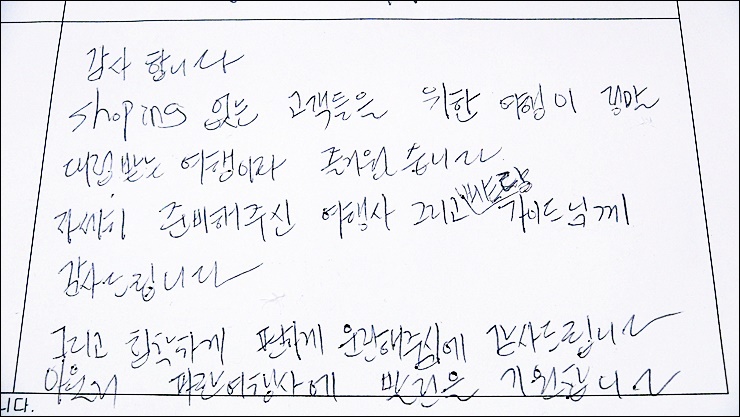 감사 합니다
shoping 없는 고객들을 위한 여행이 정말
대접받는 여행이라 즐거웠습니다
자세히 준비해주신 여행사 그리고 가이드님께
감사드립니다
그리고 편하게 운전해주심에 감사드립니다
아울러 파란여행사에 발전을 기원합니다
니다.